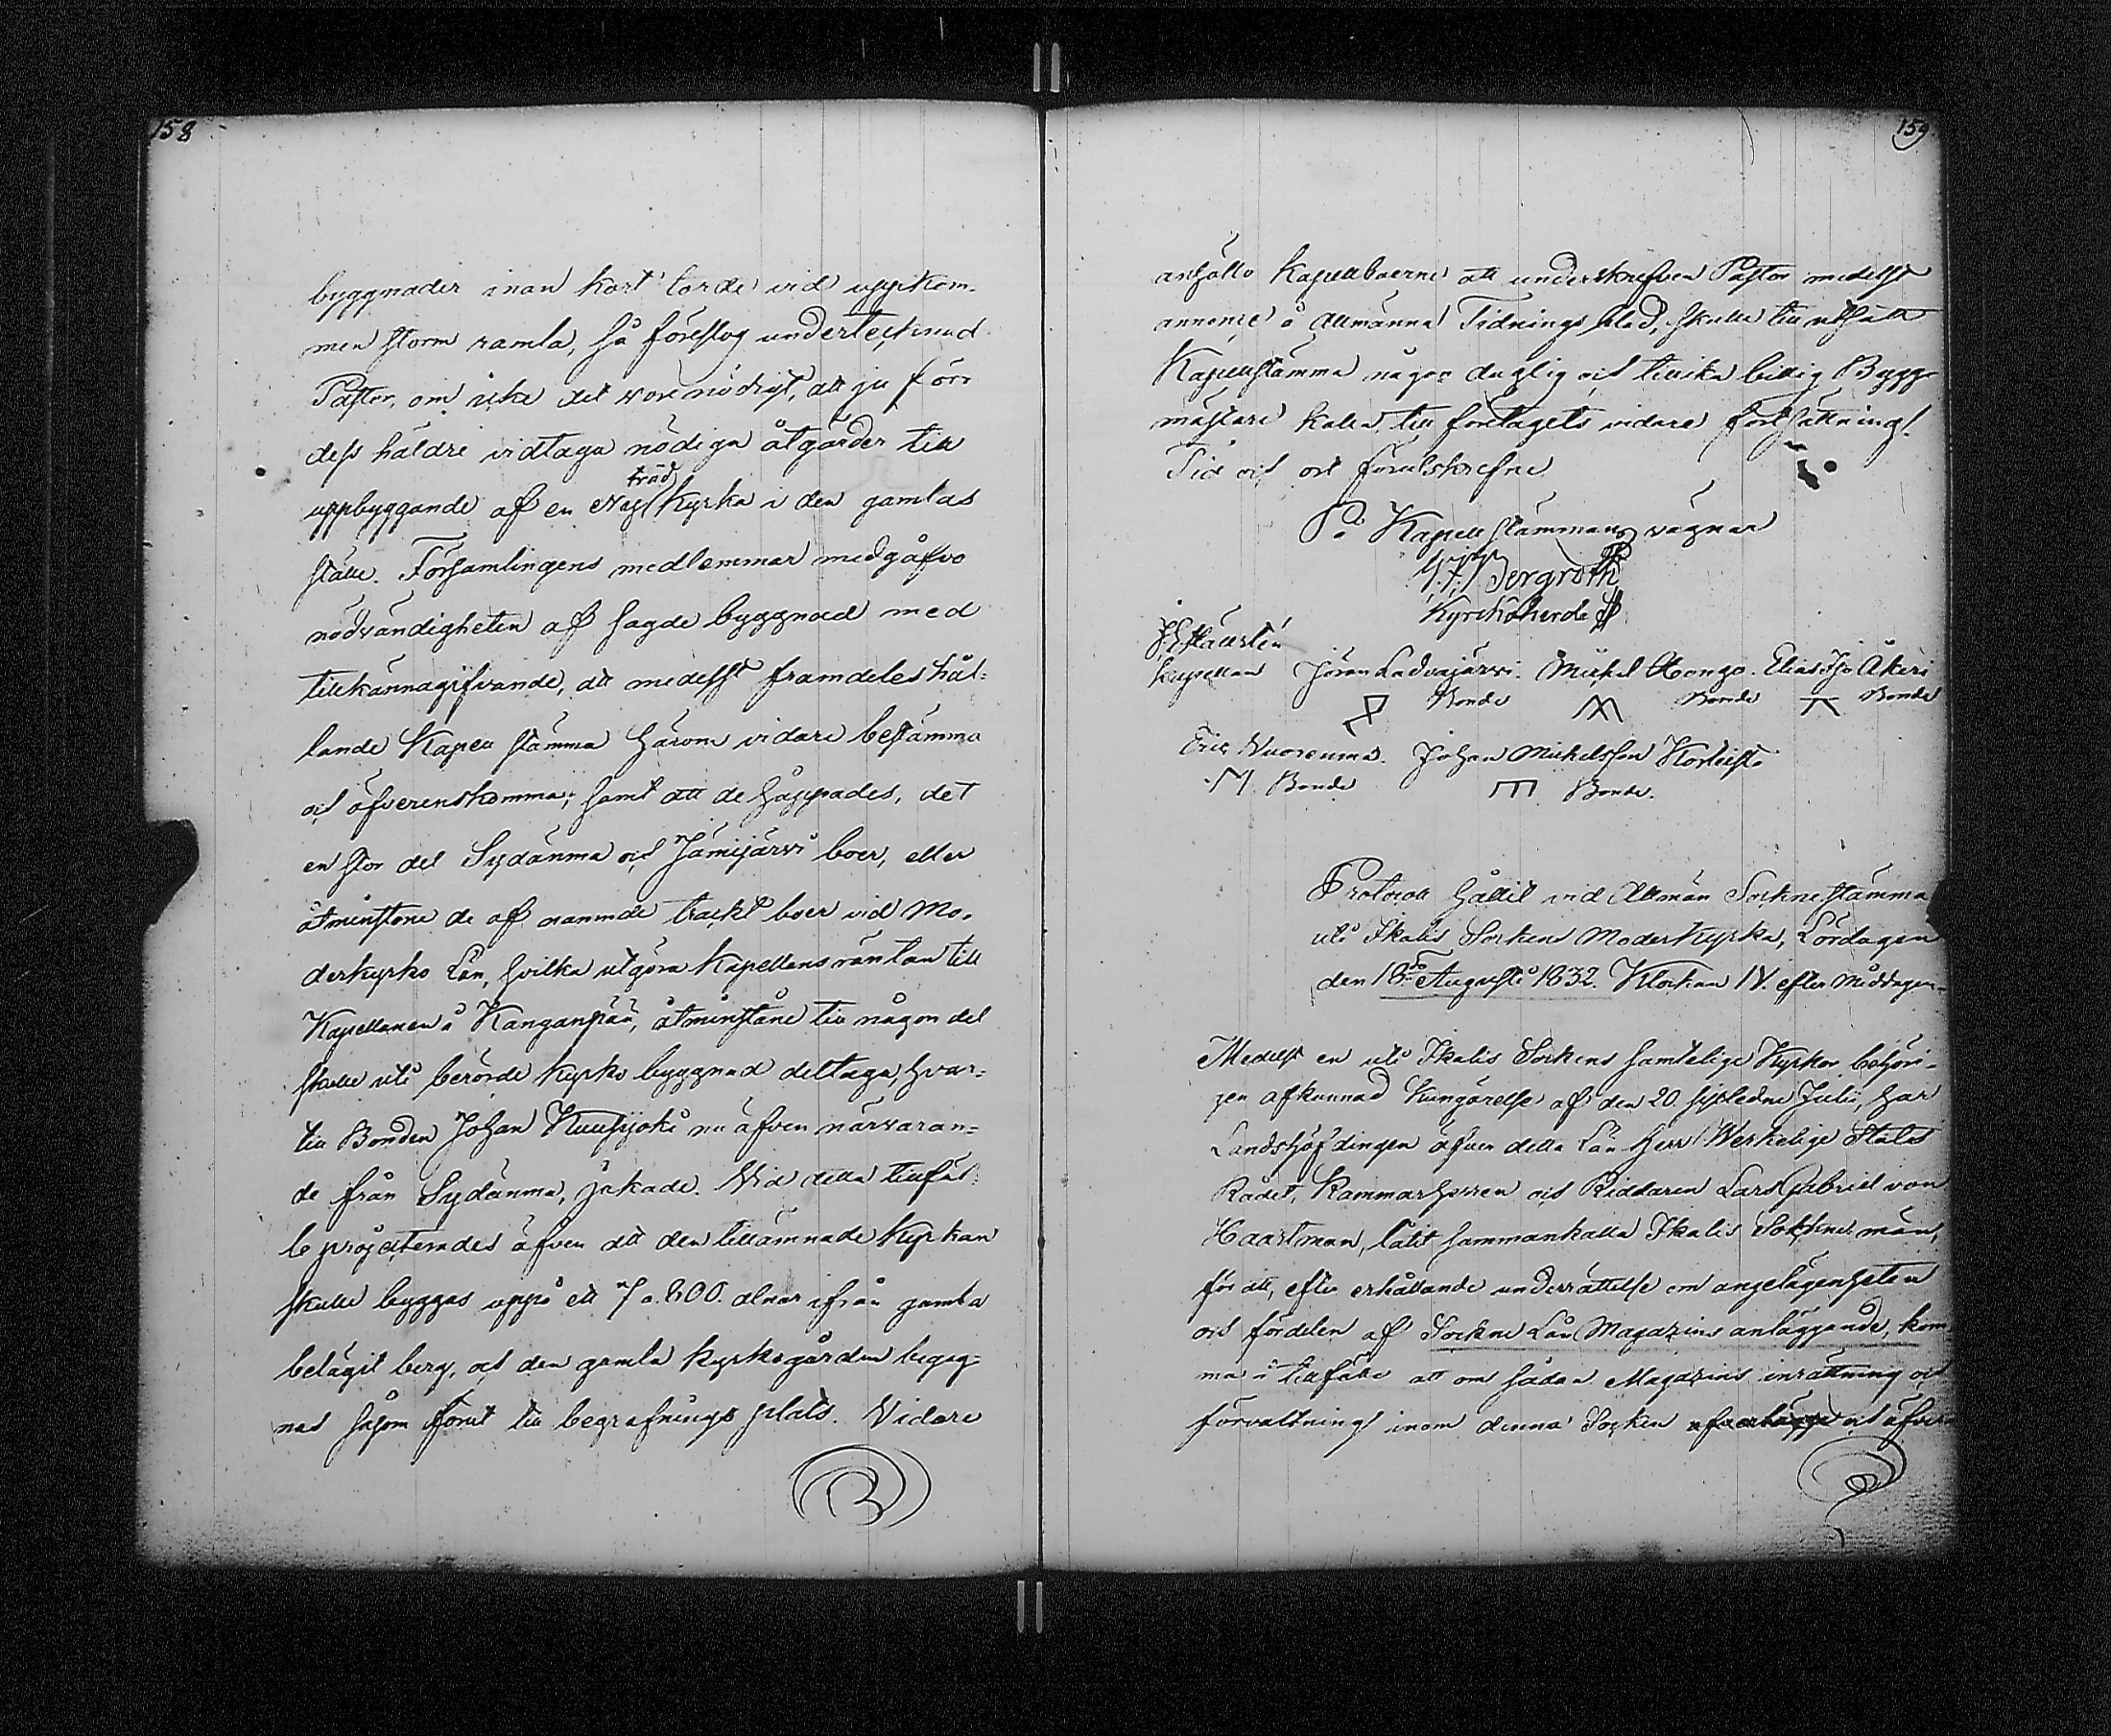 158
byggnader inan kort torde vid uppkom-
men storm ramla, så föreslog undertecknad
Pastor, om icke det vore nödigt, att ju förr
dess häldre vidtaga nödiga åtgärder till
uppbyggande af en Ny träd Kyrka i den gamlas
ställe. Församlingens medlemmar medgåfvo
nödvändigheten af sagde byggnad med
tillkännagifvande, att medelst framdeles hål-
lande Kapell stämma härom vidare bestämma
och öfverenskomma; samt att de håppades, det
en stor del Sydänma och Jämijärvi boer, eller
åtminstone de af nämnde trackt boer vid Mo-
derkyrko Län, hvilka utgöra Kapellans räntan till
Kapellanen i Kanganpää, åtminstone till någon del
skulle uti berörde kyrko byggnad deltaga, hvar-
till Bonden Johan Kuusijoki nu äfven närvaran-
de från Sydänma, jakade. Vid detta tillfäl-
le projecterades äfven att den tillämnade Kyrkan
skulle byggas uppå ett 7 a. 800. alnar ifrån gamla
belägit berg, och den gamla kyrkogården begag-
nas såsom förut till begrafnings plats. Vidare
159.
anhållo Kapellboerne att underskrefven Pastor medelst
annonce i Allmänna Tidnings blad, skulle till utsatt
Kapellstämma någon duglig och tillika billig Bygg-
mästare kalla, till företagets vidare fortsättning.
Tid och ort förutskrefne
På Kapell stämmans vägnar
Bergroth
Kyrckoherde
Hällstén
Kapellan Jöran Ladvajärvi. Mickel Hongo. Elias Iso Äkeri
Bonde Bonde Bonde
Eric Vuorenma. Johan Mickelsson Kortisto
Bonde Bonde.
Protocoll hållit vid Allmän Sockne stämma
uti Ikalis Sockens Moderkyrka, Lördagen
den 18de Augusti 1832. Klockan IV. efter Middagen.
Medelst en uti Ikalis Sockens samtelige Kyrkor behöri-
gen afkunnad Kungörelse af den 20. sistledne Julii, har
Landshöfdingen öfver detta Län Herr Werkelige Stats
Rådet, Kammarherren och Riddaren Lars Gabriel von
Haartman, låtit sammankalla Ikalis Sockne män,
för att, efter erhållande underrättelse om angelägenheten
och fördelen af Sockne Låne Magazins anläggande, kom-
ma i tillfälle att om sådan Magazins inrättning och
förvaltning inom denna Socken öfverlägga och öfver